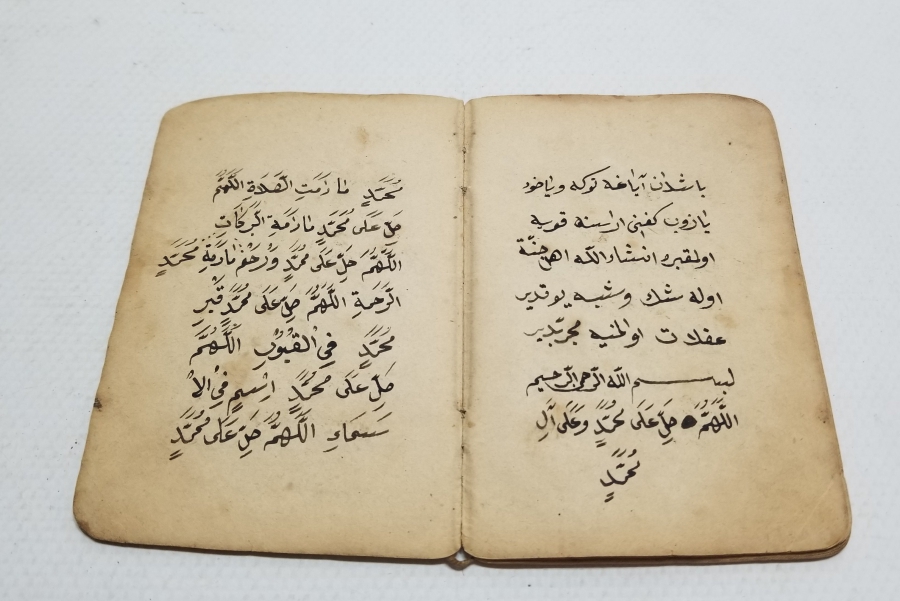 باشدن آياغه توكه وياخود
يازوب كفنى اراسنه قويه
اولمقبره انشاء الله اهل جنّة
اوله شك وشبه يوقدير
عفلات اوالمنيه مجرّبدير
بسم الله الرحمن الرحيم
اللَّهُمَّ صَلِّ عَلَى مُحَمَّدٍ وَعَلَى آلِ
مُحَمَّدٍ
مُحَمَّدٍ مَا دَامَتِ الصَّلَاةِ اللَّهُمَّ
صَلِّ عَلَى مُحَمَّدٍ مَا دَامَةِ الْبَرَكَاتِ
اللَّهُمَّ صَلِّ عَلَى مُحَمَّدٍ مُحَمَّدٍ
الرَّحمَةِ اللَّهُمَّ صَلِّ عَلَى مُحَمَّدٍ قَبْرِ
مُحَمَّدٍ فِي الْقُبُورِ اللَّهُمَّ
صَلِّ عَلَى مُحَمَّدٍ اِسْمِ فِي الْاَ
سَمَاءِ اللَّهُمَّ صَلِّ عَلَى مُحَمَّدٍ